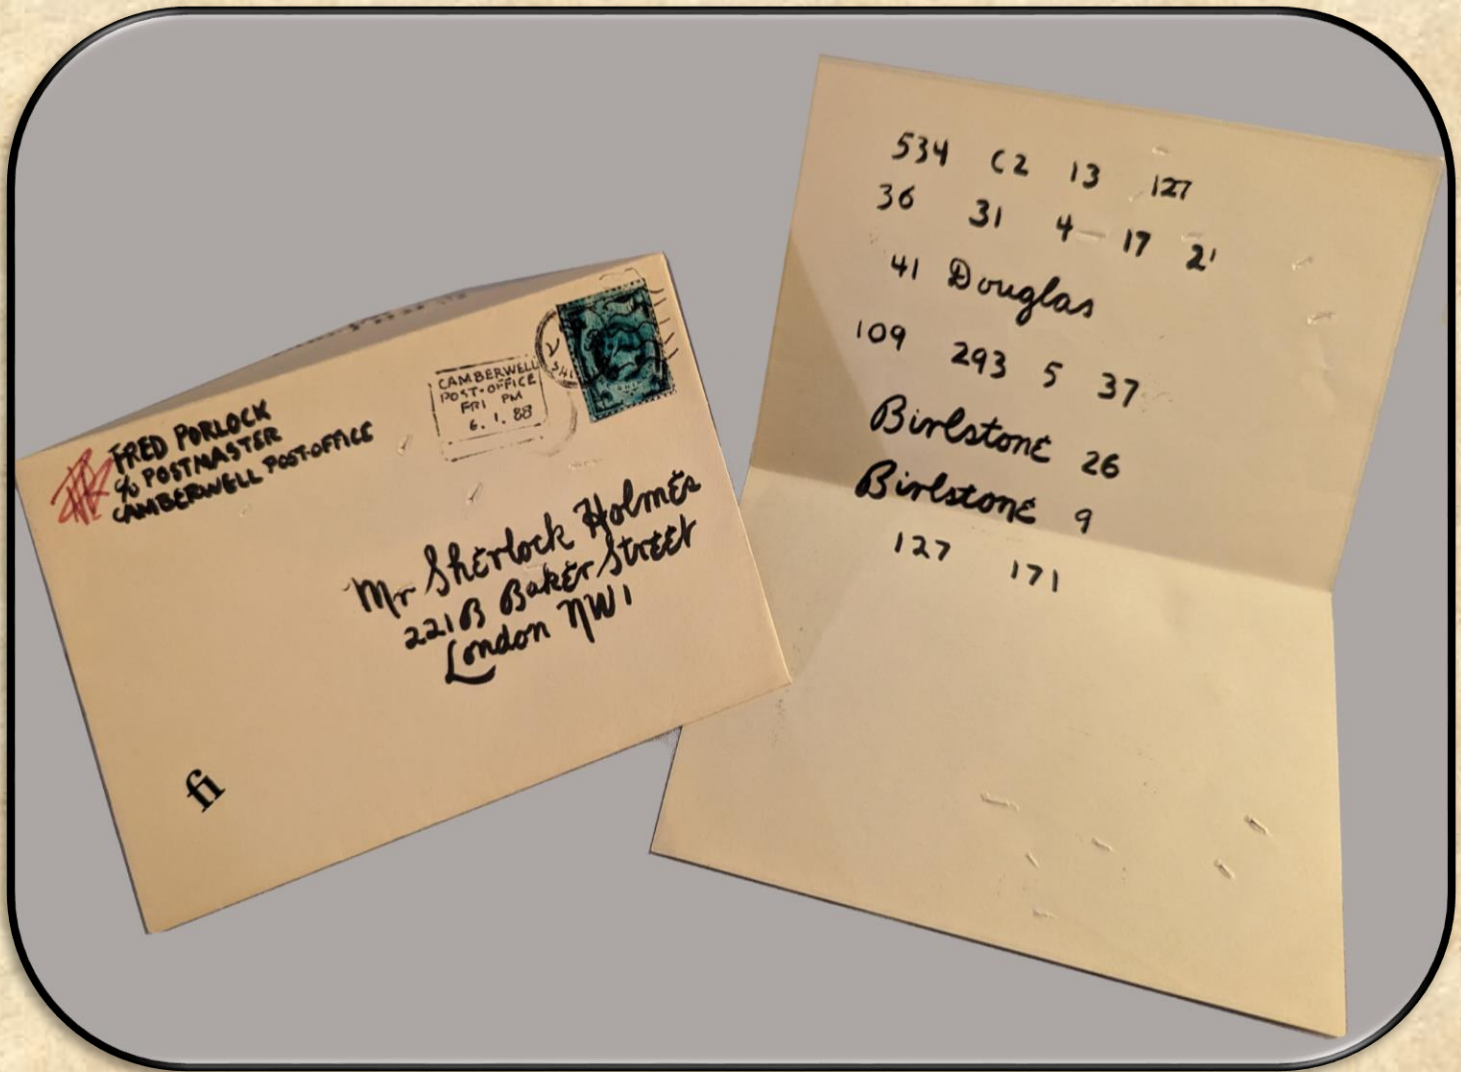 FRED PORLOCK
c/o POSTMASTER
CAMBERWELL POST-OFFICE
CAMBERWELL
POST-OFFICE
FRI PM
6. 1. 88
Mr Sherlock Holmes
221B Baker Street
London NW1
fi
534 C2 13 127
36 31 4 17 21
41 Douglas
109 293 5 37
Birlstone 26
Birlstone 9
127 171